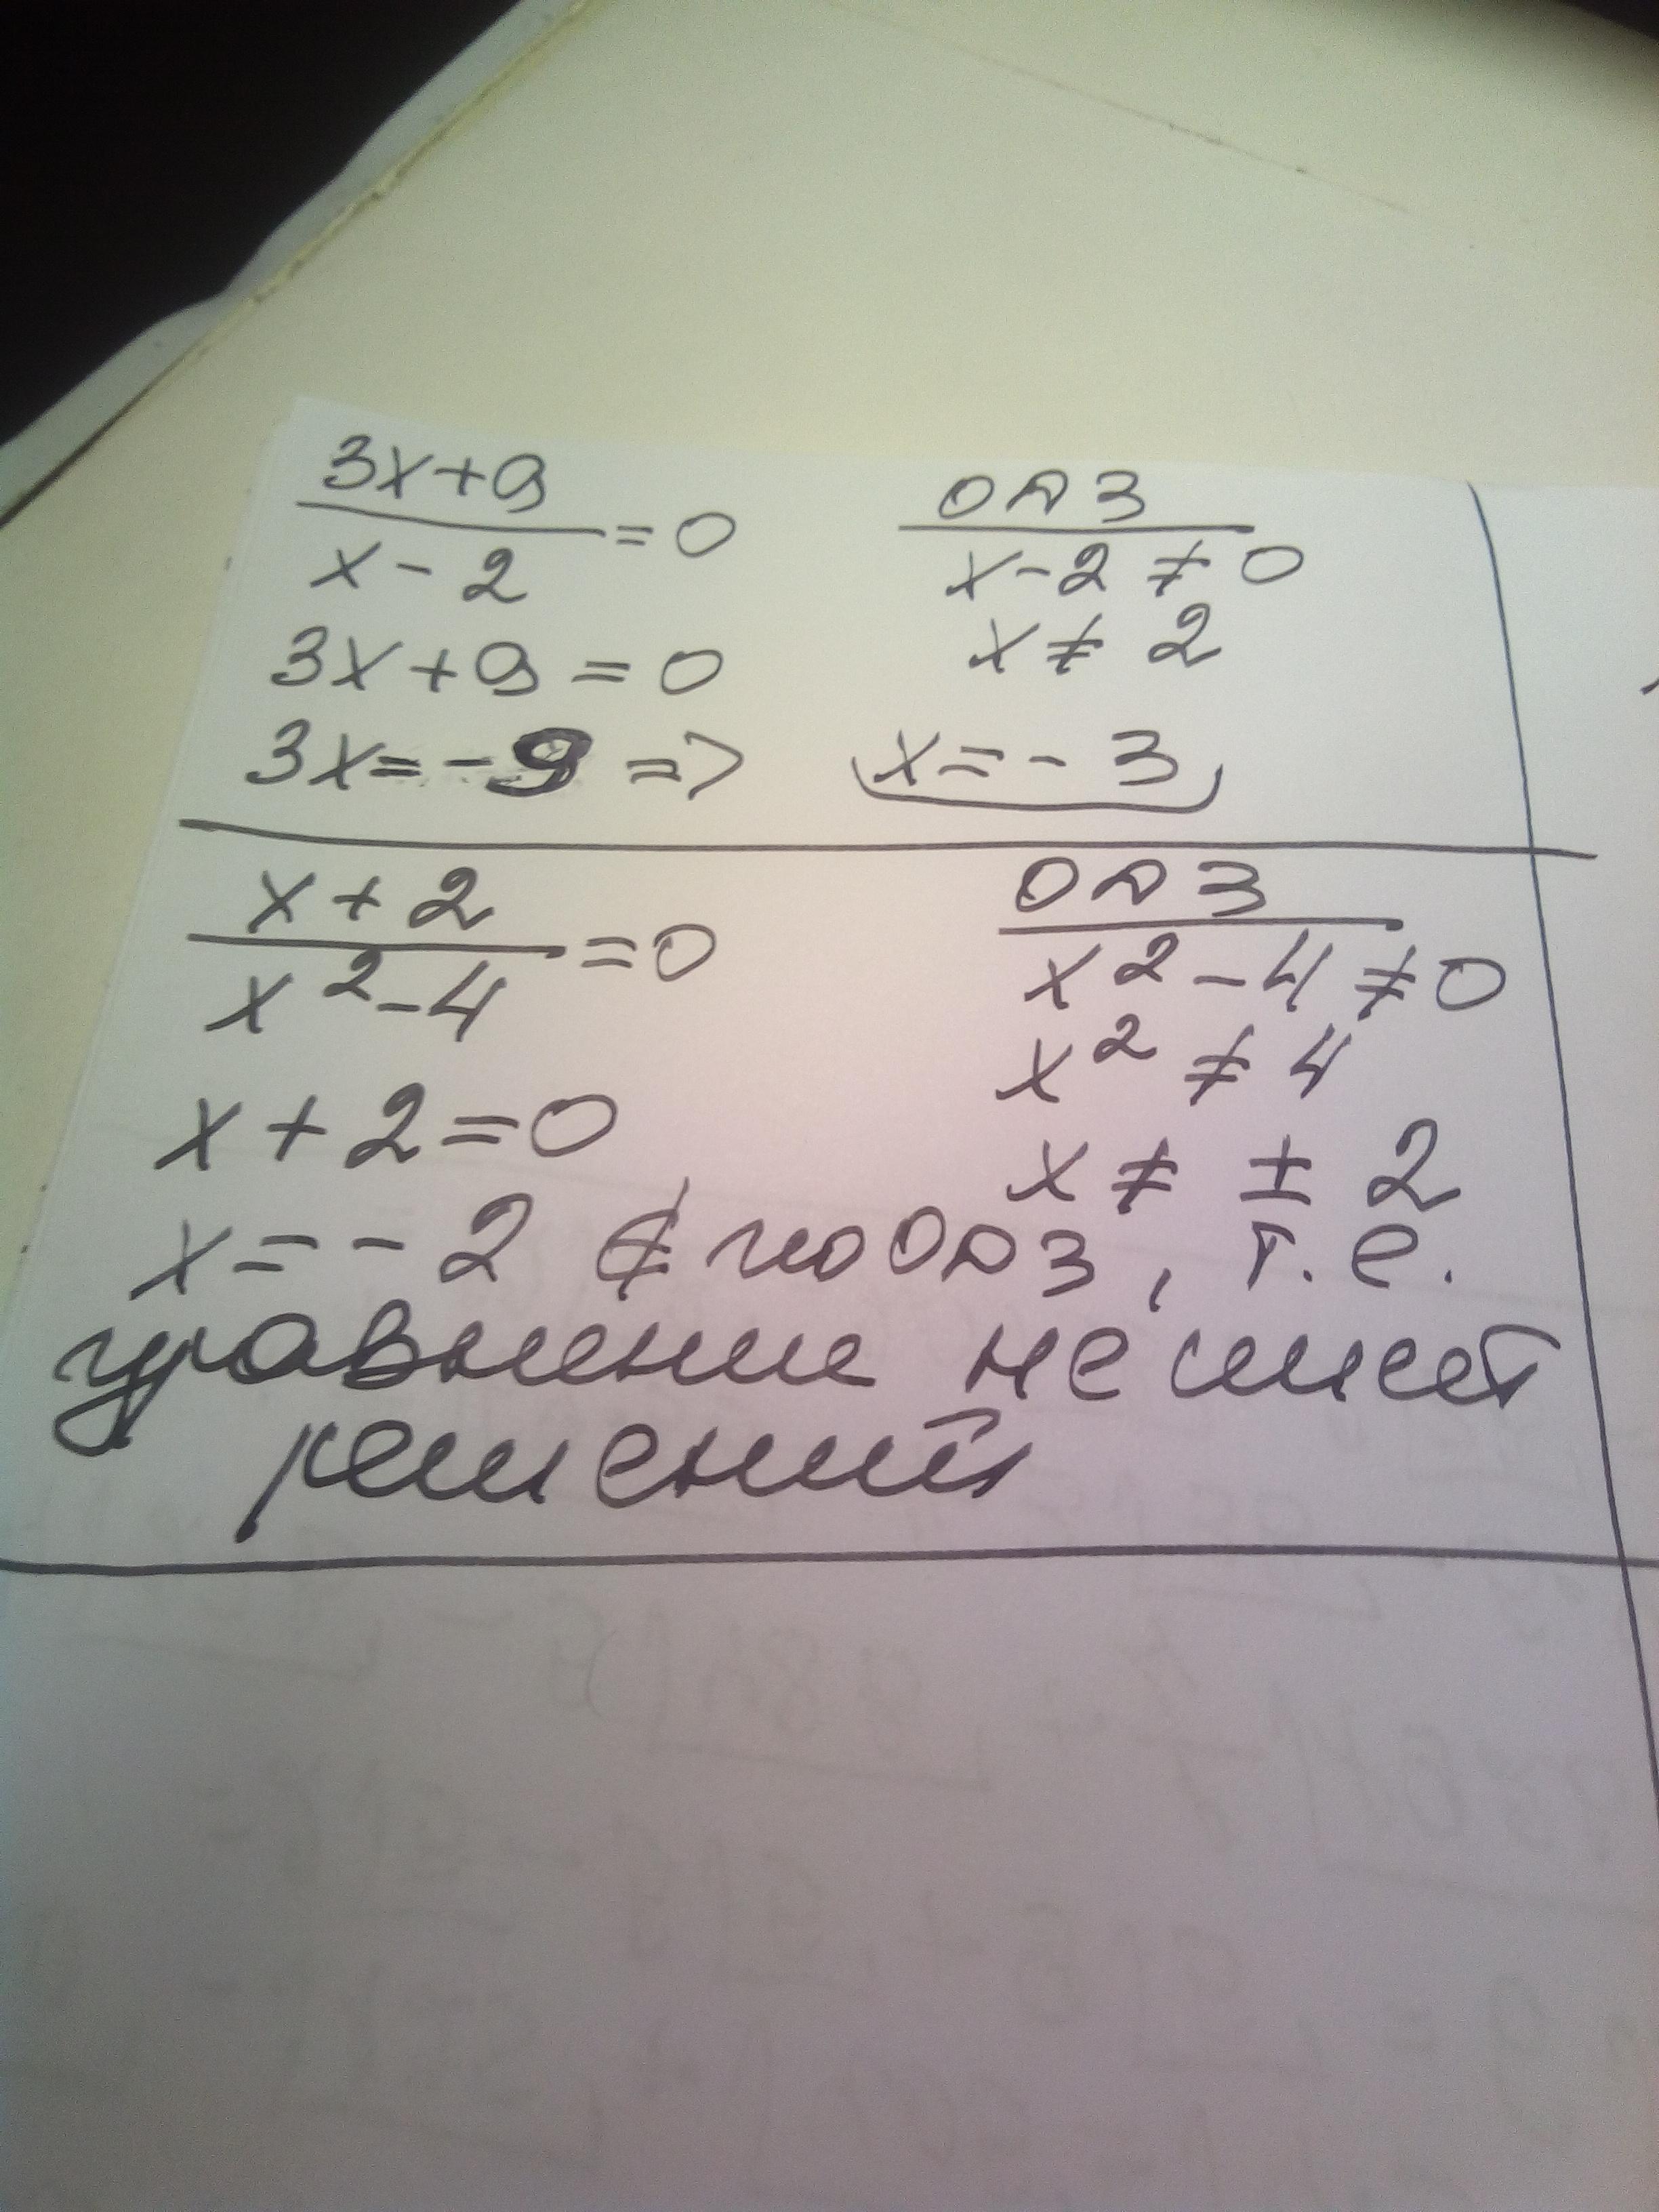 3x+9
x-2
=0
ОДЗ
x-2≠0
3x+9=0
x≠2
3x=-9 =>
x=-3
x+2
x²-4
=0
ОДЗ
x²-4≠0
x²≠4
x+2=0
x≠±2
x=-2 ∉ по ОДЗ, т.е.
уравнение не имеет
решений